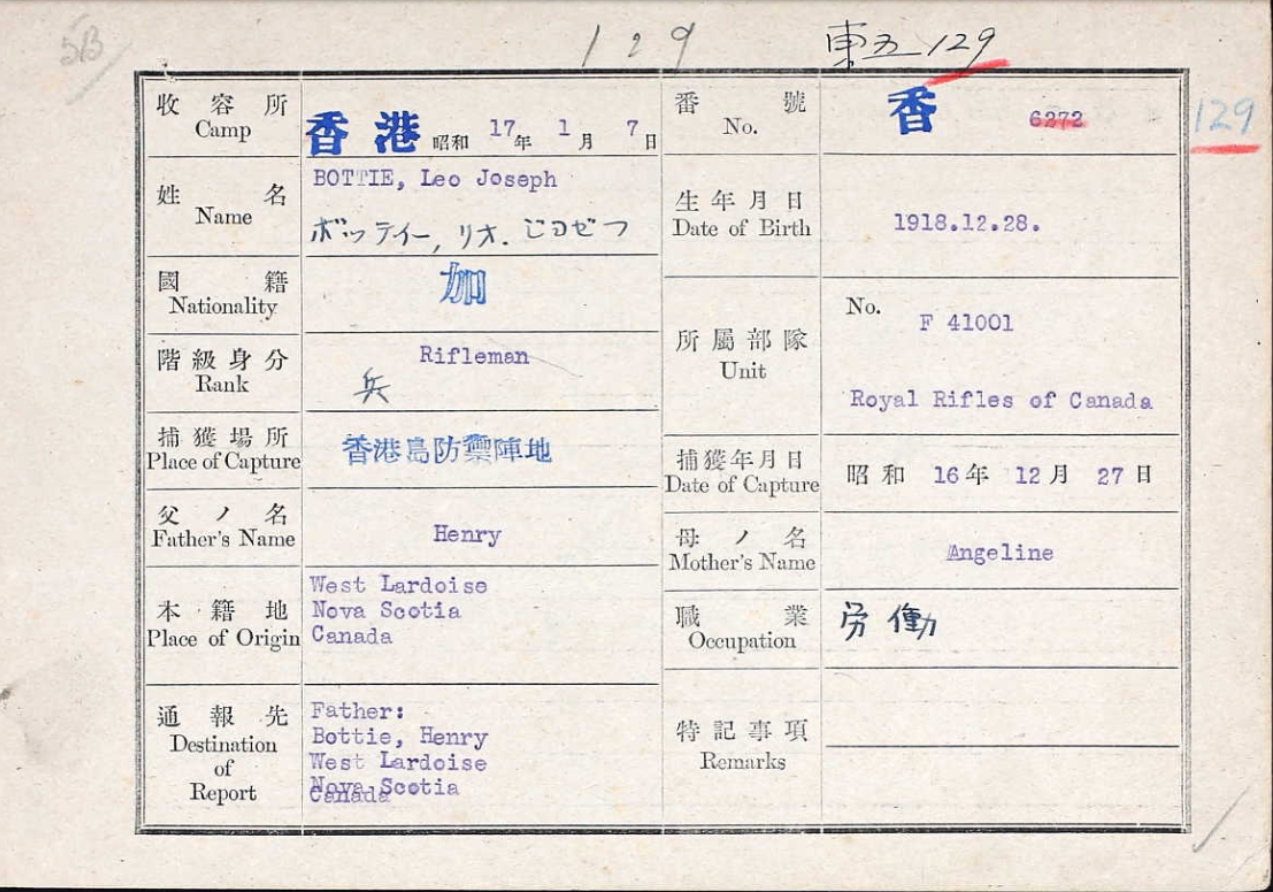 5B
129
東五129
129
收容所
Camp
香港 昭和 17年 1月 7日
番號
No.
香 6272
姓名
Name
BOTTIE, Leo Joseph
ボッテイー, リオ.
生年月日
Date of Birth
1918.12.28.
國籍
Nationality
加
階級身分
Rank
Rifleman
兵
所屬部隊
Unit
No.
F 41001
Royal Rifles of Canada
捕獲場所
Place of Capture
香港島防禦陣地
捕獲年月日
Date of Capture
昭和 16年 12月 27日
父ノ名
Father's Name
Henry
母ノ名
Mother's Name
Angeline
本籍地
Place of Origin
West Lardoise
Nova Scotia
Canada
職業
Occupation
労働
通報先
Destination
of
Report
Father:
Bottie, Henry
West Lardoise
Nova Scotia
Canada
特記事項
Remarks